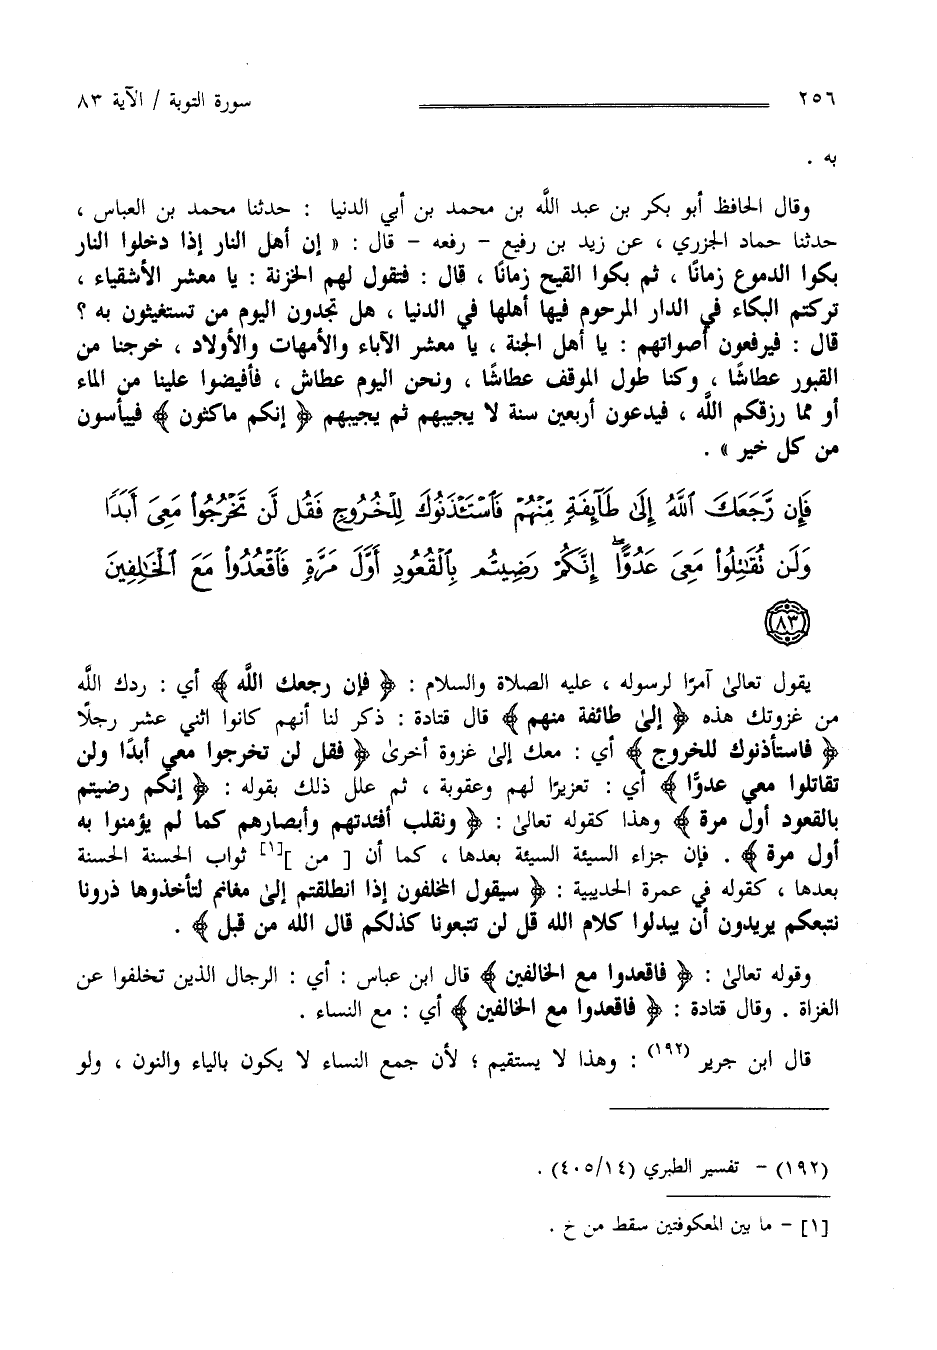 ٢٥٦ سورة التوبة / الآية ٨٣
به .
وقال الحافظ أبو بكر بن عبد اللَّه بن محمد بن أبي الدنيا : حدثنا محمد بن العباس ،
حدثنا حماد الجزري ، عن زيد بن رفيع - رفعه - قال : « إن أهل النار إذا دخلوا النار
بكوا الدموع زمانًا ، ثم بكوا القيح زمانًا ، قال : فتقول لهم الخزنة : يا معشر الأشقياء ،
تركتم البكاء في الدار المرحوم فيها أهلها في الدنيا ، هل تجدون اليوم من تستغيثون به ؟
قال : فيرفعون أصواتهم : يا أهل الجنة ، يا معشر الآباء والأمهات والأولاد ، خرجنا من
القبور عطاشًا ، وكنا طول الموقف عطاشًا ، ونحن اليوم عطاش ، فأفيضوا علينا من الماء
أو مما رزقكم اللَّه ، فيدعون أربعين سنة لا يجيبهم ثم يجيبهم ﴿ إنكم ماكثون ﴾ فييأسون
من كل خير » .
فَإِن رَّجَعَكَ ٱللَّهُ إِلَىٰ طَآئِفَةٍ مِّنْهُمْ فَٱسْتَـْٔذَنُوكَ لِلْخُرُوجِ فَقُل لَّن تَخْرُجُوا۟ مَعِىَ أَبَدًا
وَلَن تُقَـٰتِلُوا۟ مَعِىَ عَدُوًّا ۖ إِنَّكُمْ رَضِيتُم بِٱلْقُعُودِ أَوَّلَ مَرَّةٍ فَٱقْعُدُوا۟ مَعَ ٱلْخَـٰلِفِينَ
٨٣
يقول تعالىٰ آمرًا لرسوله ، عليه الصلاة والسلام : ﴿ فإن رجعك اللَّه ﴾ أي : ردك اللَّه
من غزوتك هذه ﴿ إلىٰ طائفة منهم ﴾ قال قتادة : ذكر لنا أنهم كانوا اثني عشر رجلًا
﴿ فاستأذنوك للخروج ﴾ أي : معك إلىٰ غزوة أخرىٰ ﴿ فقل لن تخرجوا معي أبدًا ولن
تقاتلوا معي عدوًّا ﴾ أي : تعزيرًا لهم وعقوبة ، ثم علل ذلك بقوله : ﴿ إنكم رضيتم
بالقعود أول مرة ﴾ وهذا كقوله تعالىٰ : ﴿ ونقلب أفئدتهم وأبصارهم كما لم يؤمنوا به
أول مرة ﴾ . فإن جزاء السيئة السيئة بعدها ، كما أن [ من ][١] ثواب الحسنة الحسنة
بعدها ، كقوله في عمرة الحديبية : ﴿ سيقول المخلفون إذا انطلقتم إلىٰ مغانم لتأخذوها ذرونا
نتبعكم يريدون أن يبدلوا كلام الله قل لن تتبعونا كذلكم قال الله من قبل ﴾ .
وقوله تعالىٰ : ﴿ فاقعدوا مع الخالفين ﴾ قال ابن عباس : أي : الرجال الذين تخلفوا عن
الغزاة . وقال قتادة : ﴿ فاقعدوا مع الخالفين ﴾ أي : مع النساء .
قال ابن جرير (١٩٢) : وهذا لا يستقيم ؛ لأن جمع النساء لا يكون بالياء والنون ، ولو
(١٩٢) - تفسير الطبري (٤٠٥/١٤) .
[١] - ما بين المعكوفتين سقط من خ .